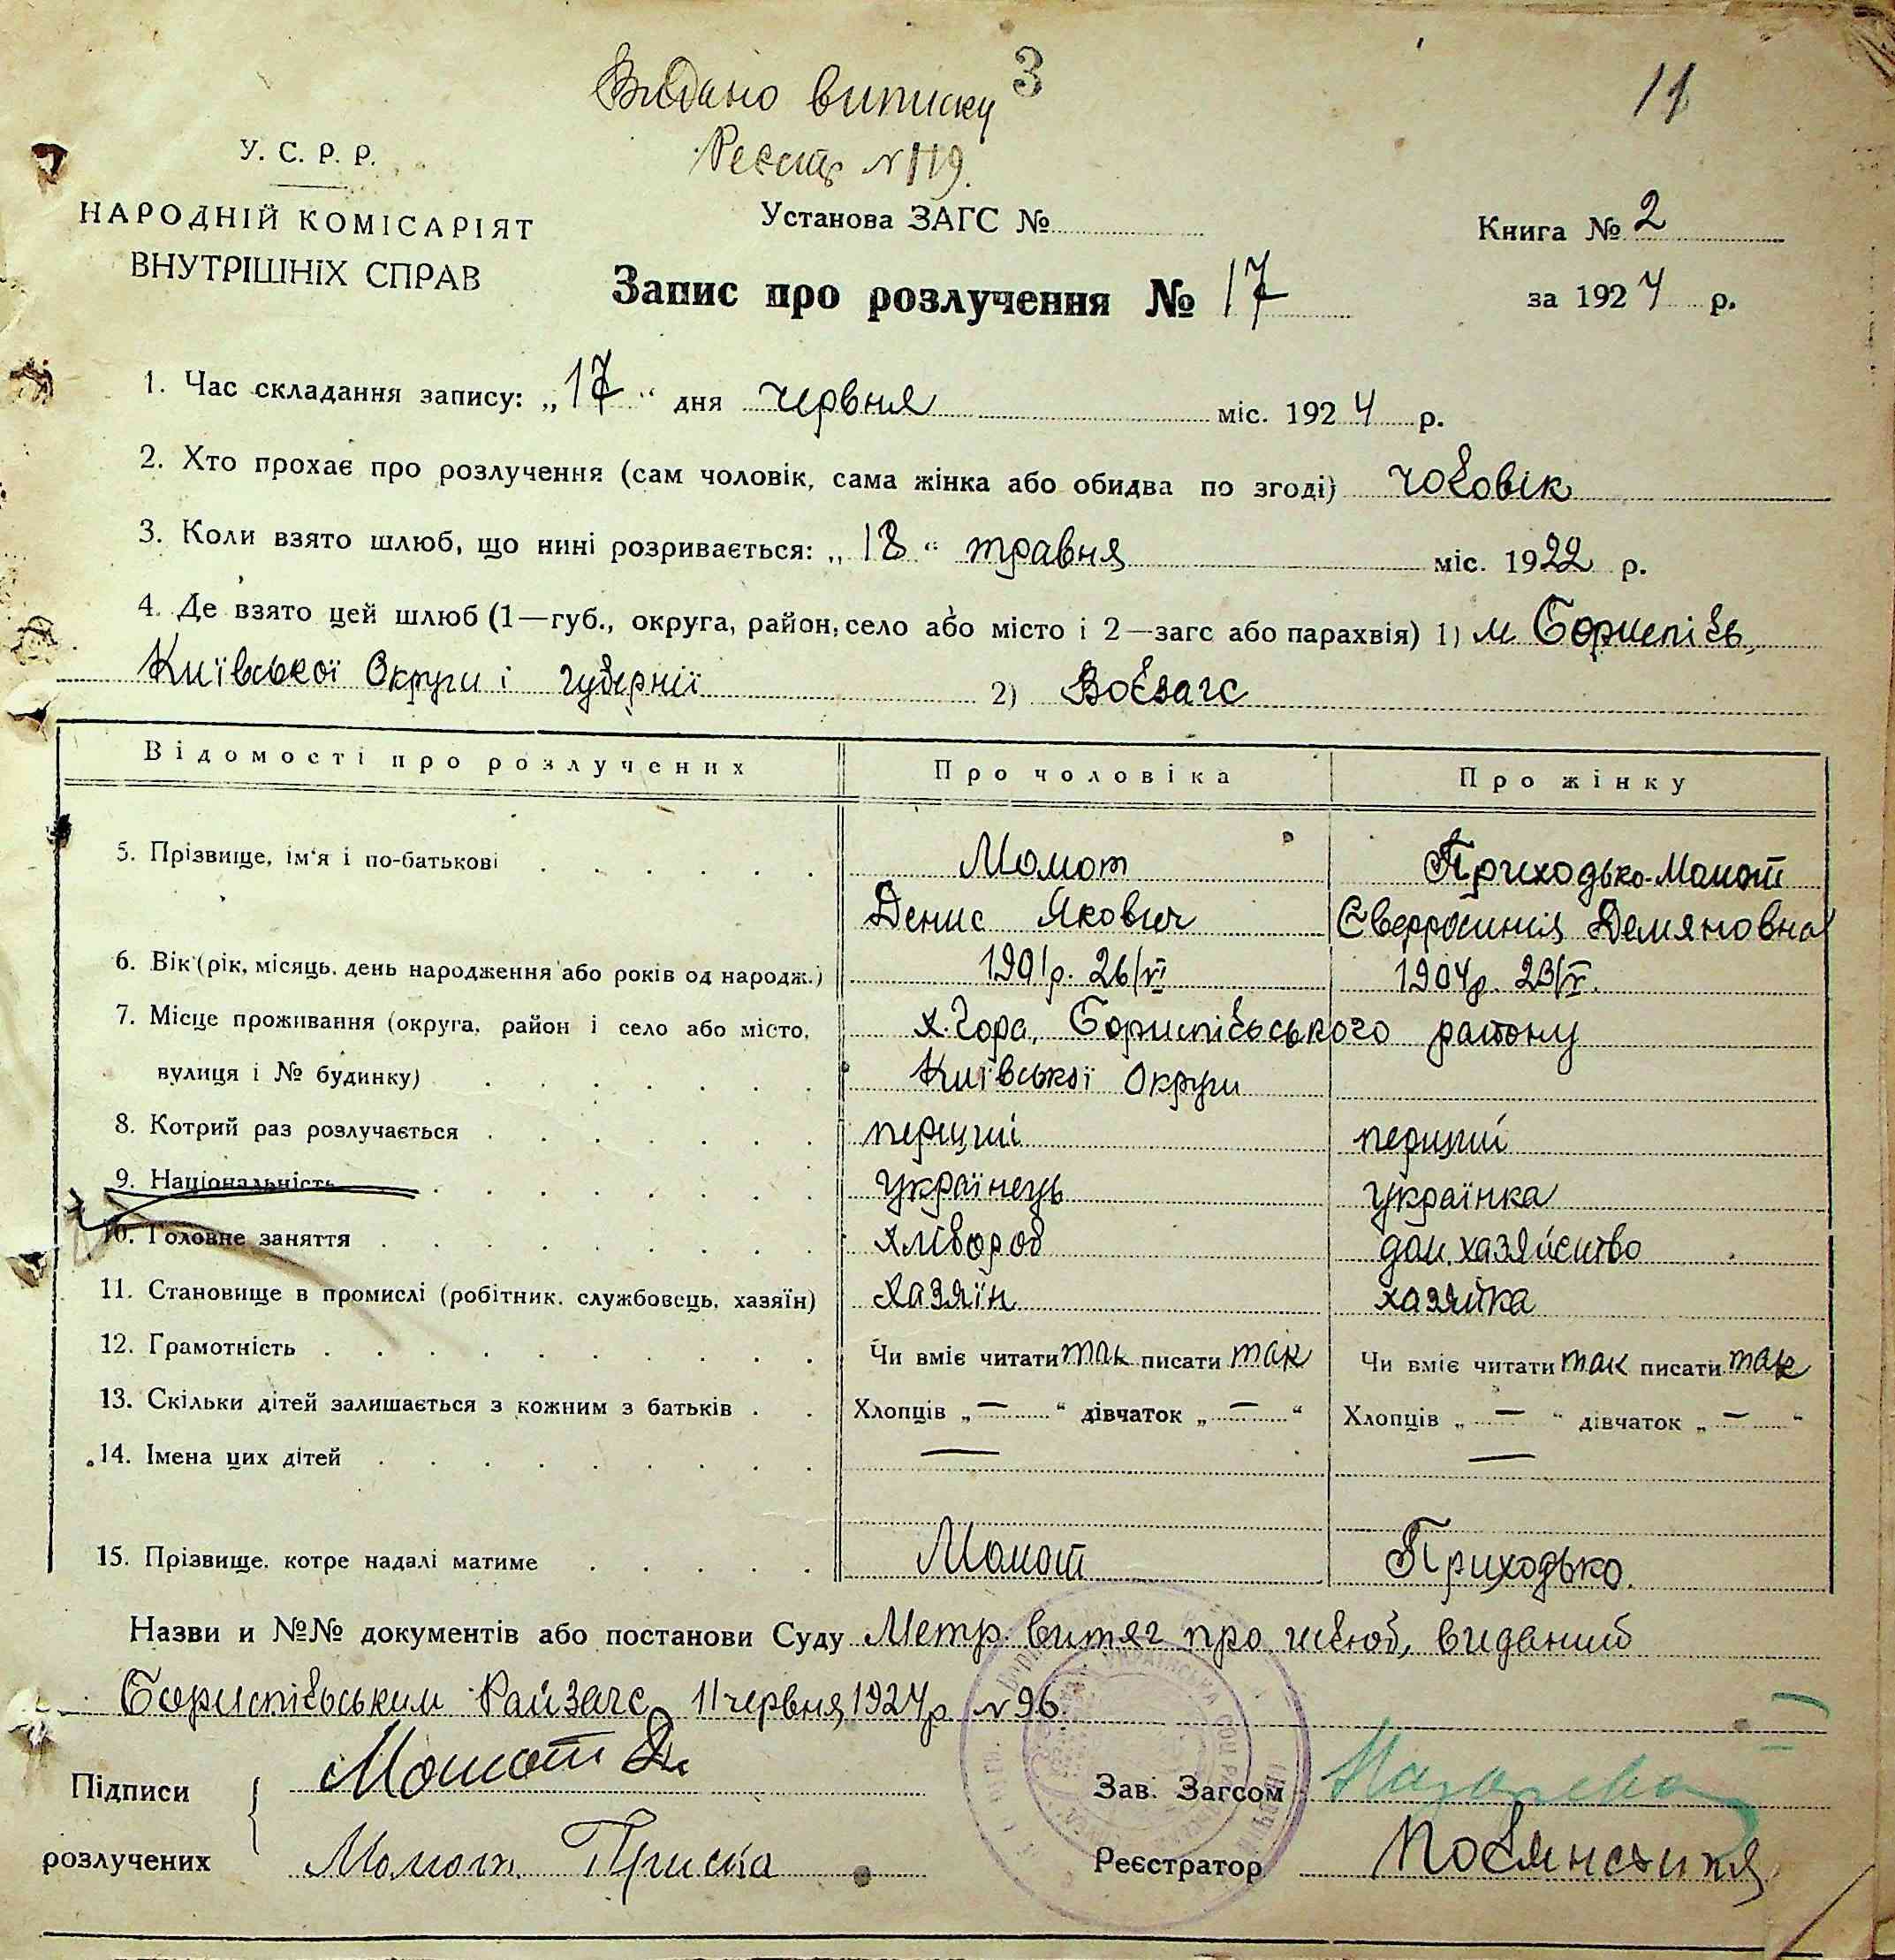 Видано виписку 3
11
Реєстр N 119.
У. С. Р. Р.
НАРОДНІЙ КОМІСАРІЯТ
ВНУТРІШНІХ СПРАВ
Установа ЗАГС №
Книга № 2
Запис про розлучення № 17
за 1924 р.
1. Час складання запису: „17“ дня червня міс. 1924 р.
2. Хто прохає про розлучення (сам чоловік, сама жінка або обидва по згоді) чоловік
3. Коли взято шлюб, що нині розривається: „18“ травня міс. 1922 р.
4. Де взято цей шлюб (1—губ., округа, район, село або місто і 2—загс або парахвія) 1) м Бориспіль,
Київської Округи і губернії 2) Волзагс
Відомості про розлучених Про чоловіка Про жінку
5. Прізвище, ім'я і по-батькові Момот Приходько-Момот
Денис Якович Єверросинія Демяновна
6. Вік (рік, місяць, день народження або років од народж.) 1901р. 26/VI 1904р. 23/V.
7. Місце проживання (округа, район і село або місто, х. Гора, Бориспільського району
вулиця і № будинку) Київської Округи
8. Котрий раз розлучається перший перший
9. Національність українець українка
10. Головне заняття хлібороб дом. хазяйство
11. Становище в промислі (робітник, службовець, хазяїн) хазяїн хазяйка
12. Грамотність Чи вміє читати так писати так Чи вміє читати так писати так
13. Скільки дітей залишається з кожним з батьків Хлопців „—“ дівчаток „—“ Хлопців „—“ дівчаток „—“
14. Імена цих дітей — —
15. Прізвище, котре надалі матиме Момот Приходько.
Назви и №№ документів або постанови Суду Метр. витяг про шлюб, виданий
Бориспільським Райзагс 11 червня 1924р N 96.
Підписи Момот Д
Зав. Загсом
розлучених Момот Приська
Реєстратор